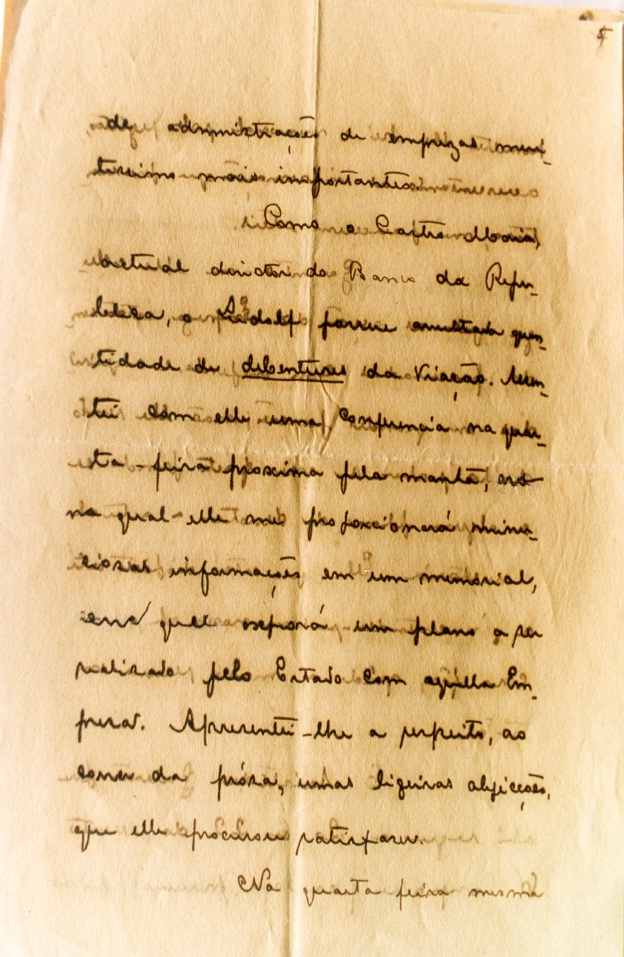 5
de administrações de emprezas mui-
tissimo mais importantes
Como o Castro Maia,
actual director do Banco da Repu-
blica, o Rodolfo possue avultada quan-
tidade de debentures da Viação. Assen-
tei com elle uma conferencia na quar-
ta-feira proxima pela manhã,
na qual elle me proporcionará minu-
ciosas informações em um memorial,
em que exporá um plano a ser
realizado pelo Estado com aquella Em-
preza. Apresentei-lhe a respeito, ao
correr da prosa, umas ligeiras objecções,
que elle procurou satisfazer.
Na quarta feira mesma